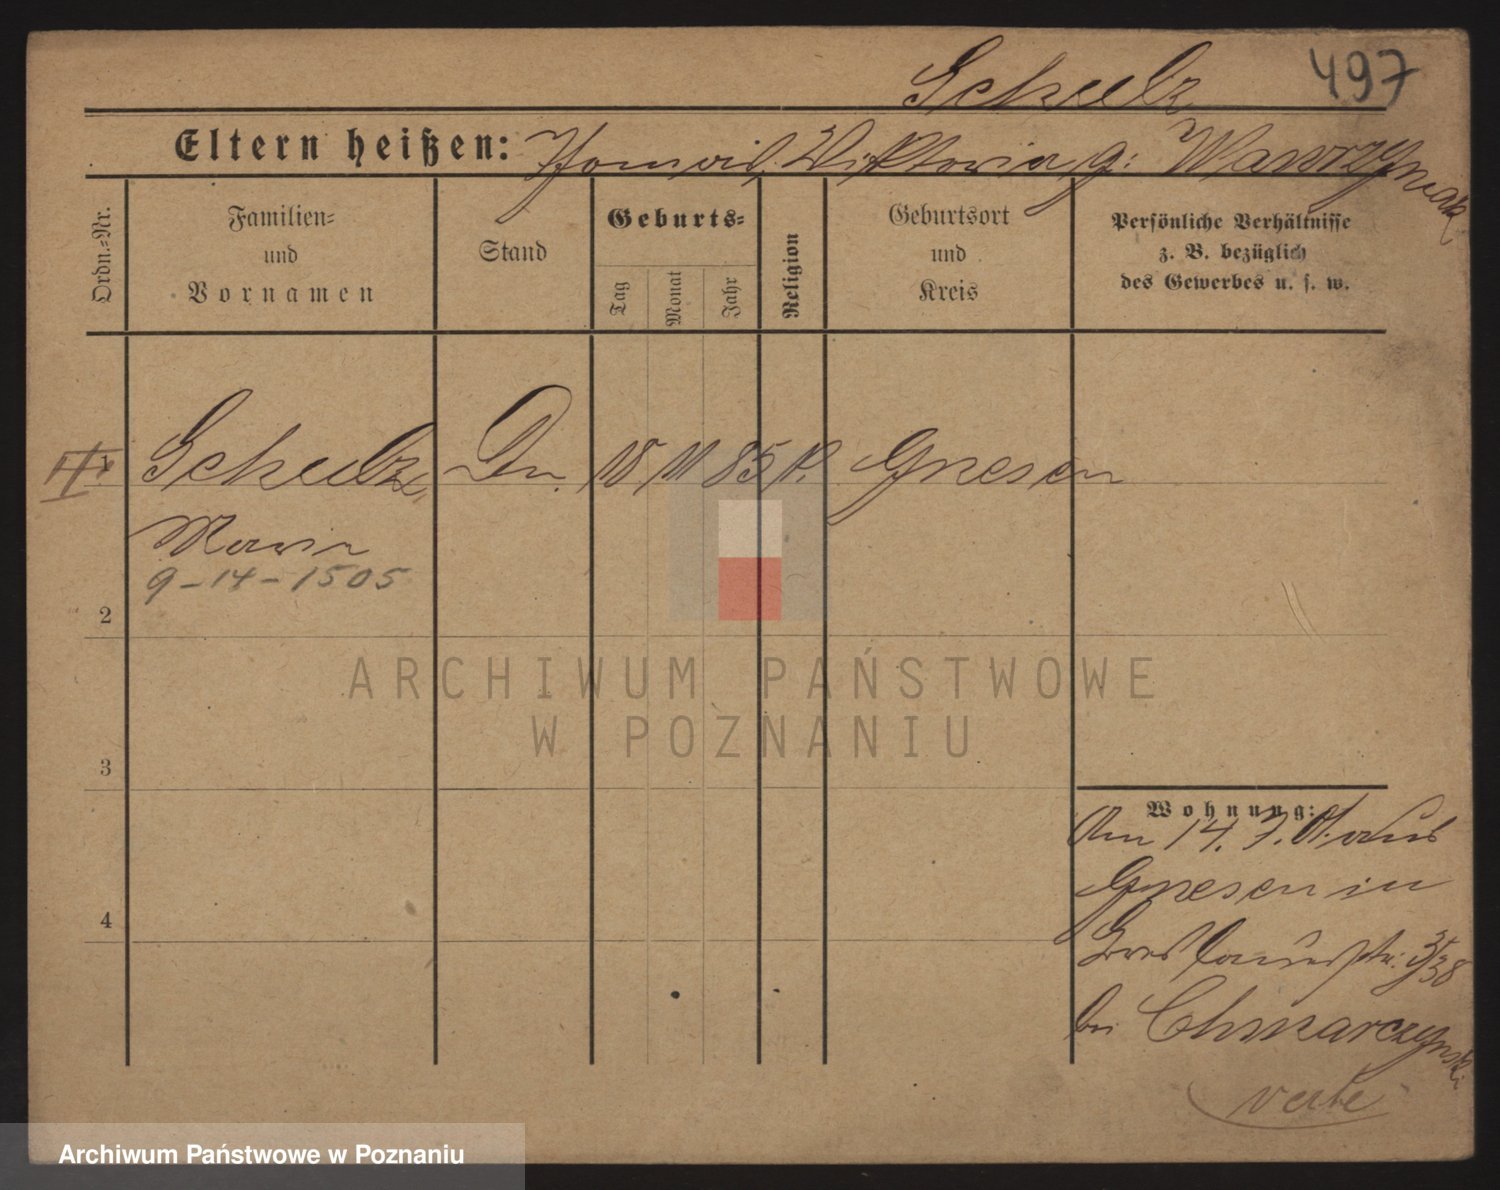 Schulz
497
Eltern heißen: Thomas. Viktoria g: Wawrzyniak
Ordn.=Nr.
Familien=
und
Vornamen
Stand
Geburts=
Tag
Monat
Jahr
Religion
Geburtsort
und
Kreis
Persönliche Verhältnisse
z. B. bezüglich
des Gewerbes u. s. w.
1 Schulz, Dn. 18 11 85 k. Gnesen
Maria
9-14-1505
2
3
4
Wohnung:
Am 14. 7. aus
Gnesen in
38
bei Chmarczynski
verte
ARCHIWUM PAŃSTWOWE
W POZNANIU
Archiwum Państwowe w Poznaniu